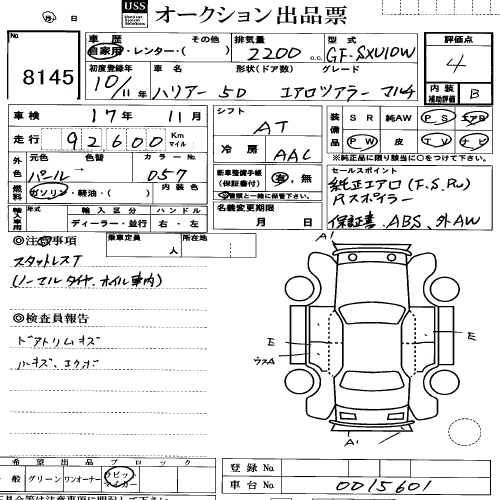 月 日
USS オークション出品票
No. 8145
車歴 自家用・レンター・( ) その他
排気量 2200 c.c.
型式 GF-SXU10W
評価点 4
初度登録年 10/11年
車名 ハリアー
形状(ドア数) 5D
グレード エアロツアラー
内装補助評価 B
車検 17年 11月
走行 92,600 Km マイル
シフト AT
冷房 AAC
装備品 SR 純AW PS エアB
PW 皮 TV ナビ
※純正品に限り該当に○をつけて下さい。
外色 元色 パール 色替 カラーNo. 057
燃料 ガソリン・軽油・( ) 内装色
新車整備手帳(保証書付) 有・無
書類と一緒に保管下さい。
名義変更期限 月 日
セールスポイント
純正エアロ(F.S.Rr)
Rスポイラー
保証書、ABS、外AW
輸入車用 形式 輸入区分 ディーラー・並行 ハンドル 右・左
◎注意事項
乗車定員 人
所在地
スタットレスT
(ノーマルタイヤ、ホイル車内)
◎検査員報告
ドアトリムキズ
ハキズ、エクボ
A1
E
ラスA
E
A1
希望出品ブロック
般 グリーン ワンオーナー
登録No.
車台No. 0015601